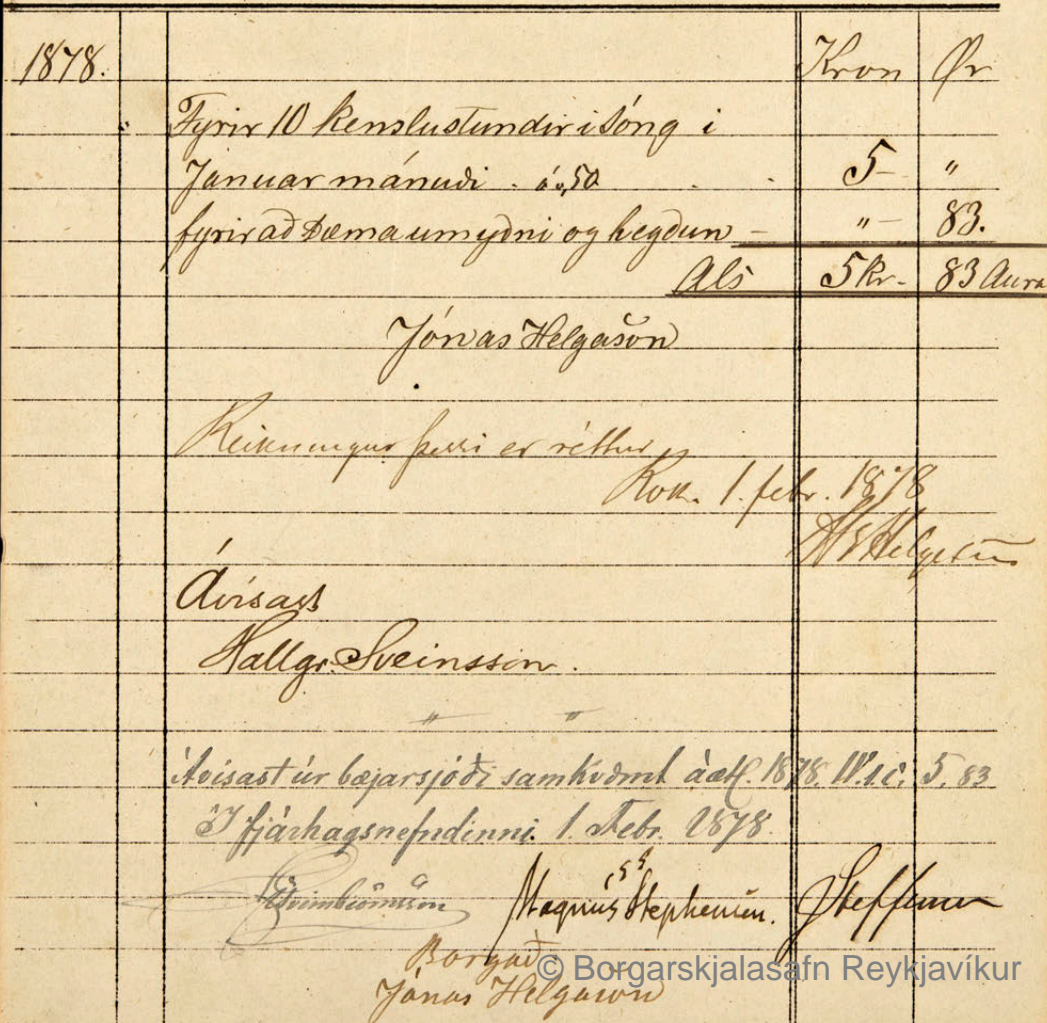 1878. Kron Ør
Fyrir 10 kenslustundir i sóng i
Januar mánuði . á 0,50 . . 5 – "
fyrir að dæma um yðni og hegdun – " – 83.
Als 5 kr. 83 Aura
Jónas Helgason
Reikningur þessi er réttur
Rvk. 1. febr. 1878
H E Helgesen
Ávisast
Hallgr. Sveinsson.
" "
Ávísast úr bæjarsjóði samkvæmt áætl. 1878. IV.1.c. 5. 83
I fjárhagsnefndinni. 1. Febr. 1878.
ESveinbiörnsson Magnús Stephensen. JSteffensen
Borgað
Jónas Helgason
© Borgarskjalasafn Reykjavíkur